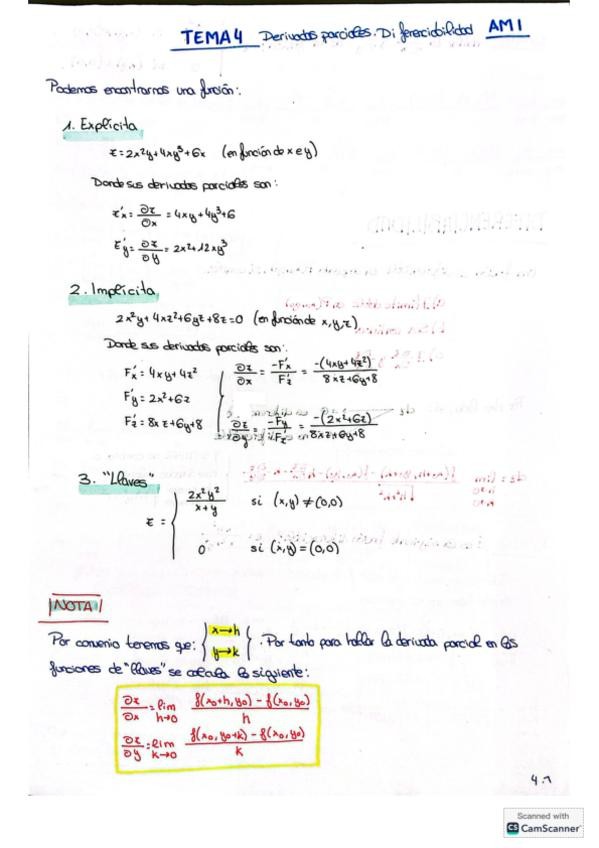 TEMA 4 Derivadas parciales. Diferenciabilidad AM I
Podemos encontrarnos una función:
1. Explícita
z = 2x²y + 4xy³ + 6x (en función de x e y)
Donde sus derivadas parciales son:
z'x = ∂z/∂x = 4xy + 4y³ + 6
z'y = ∂z/∂y = 2x² + 12xy³
2. Implícita
2x²y + 4xz² + 6yz + 8z = 0 (en función de x, y, z)
Donde sus derivadas parciales son:
F'x = 4xy + 4z² ∂z/∂x = -F'x/F'z = -(4xy + 4z²)/8xz + 6y + 8
F'y = 2x² + 6z
F'z = 8xz + 6y + 8 ∂z/∂y = -F'y/F'z = -(2x² + 6z)/8xz + 6y + 8
3. "Llaves"
z = { 2x²y²/x+y si (x,y) ≠ (0,0)
0 si (x,y) = (0,0)
NOTA
Por convenio tenemos que: { x→h y→k }. Por tanto para hallar la derivada parcial en las
funciones de "llaves" se calcula lo siguiente:
∂z/∂x = lim h→0 f(x₀+h, y₀) - f(x₀, y₀)/h
∂z/∂y = lim k→0 f(x₀, y₀+k) - f(x₀, y₀)/k
4.1
Scanned with
CS CamScanner